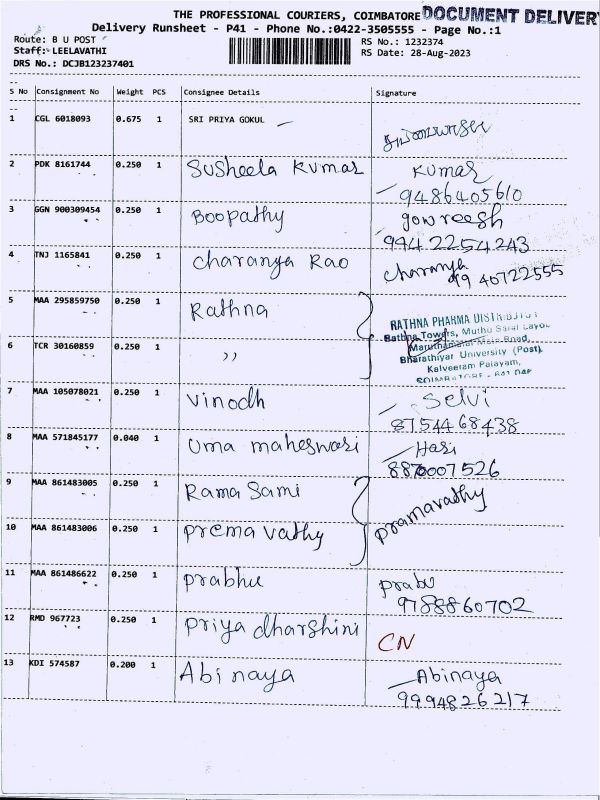 THE PROFESSIONAL COURIERS, COIMBATORE DOCUMENT DELIVERY
Delivery Runsheet - P41 - Phone No.:0422-3505555 - Page No.:1
Route: B U POST
RS No.: 1232374
Staff: LEELAVATHI
RS Date: 28-Aug-2023
DRS No.: DCJB123237401
S No Consignment No Weight PCS Consignee Details Signature
1 CGL 6018093 0.675 1 SRI PRIYA GOKUL
2 PDK 8161744 0.250 1 Susheela Kumar Kumar
9486405610
3 GGN 900309454 0.250 1 Boopathy gowreesh
9442254243
4 TNJ 1165841 0.250 1 Charanya Rao Charanya
99 40722555
5 MAA 295859750 0.250 1 Rathna
RATHNA PHARMA DISTRIBUTOR
Rathna Towers, Muthu Layout
Maruthamalai Main Road,
6 TCR 30160859 0.250 1 ,,
Bharathiyar University (Post),
Kalveeram Palayam,
COIMBATORE
7 MAA 105078021 0.250 1 Vinodh Selvi
8754468438
8 MAA 571845177 0.040 1 Uma maheswari Hari
8870007526
9 MAA 861483005 0.250 1 Rama Sami
pramavathy
10 MAA 861483006 0.250 1 prema vathy
11 MAA 861486622 0.250 1 prabhu prabu
9788860702
12 RMD 967723 0.250 1 priya dharshini CN
13 KDI 574587 0.200 1 Abinaya Abinaya
9994826217